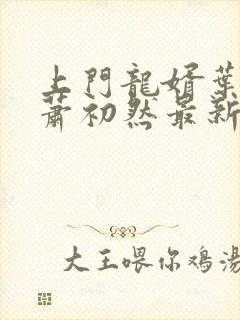 上門龍婿葉
蕭初然最新
大王喂你鸡湯